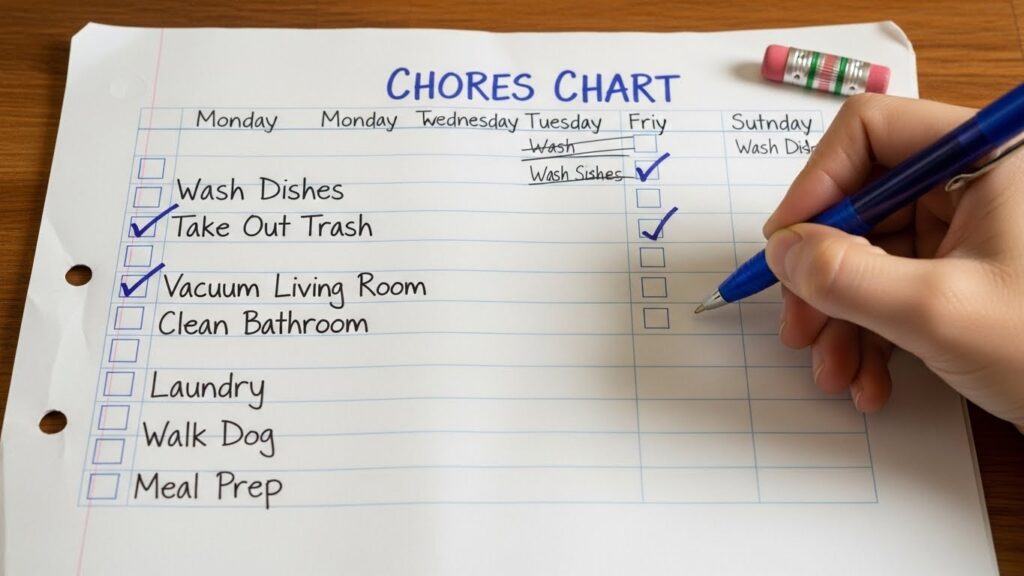 CHORES CHART
Monday Monday Twednesday Tuesday Friy Sutnday
Wash Wash
Wash Sishes
Wash Dishes
Take Out Trash
Vacuum Living Room
Clean Bathroom
Laundry
Walk Dog
Meal Prep